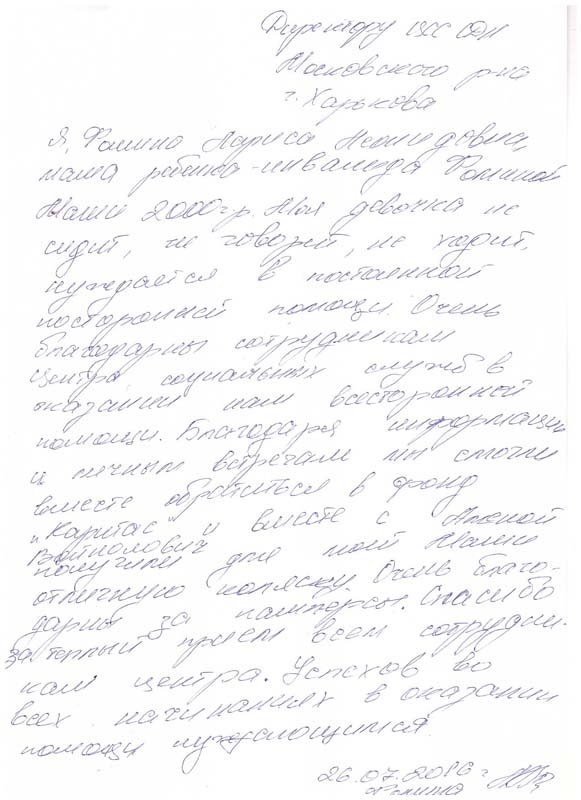 Директору ЦСС СДМ
Московского р-на
г. Харькова
Я, Фомина Лариса Леонидовна,
мама ребенка-инвалида Фоминой
2000 г.р. Моя девочка не
сидит, не говорит, не ходит,
нуждается в постоянной
посторонней помощи. Очень
благодарны сотрудникам
Центра социальных служб в
оказании нам всесторонней
помощи. Благодаря информации
и личным встречам мы смогли
вместе обратиться в фонд
"Каритас" и вместе с Аленой
Войтолович
получили для моей
отличную коляску. Очень благо-
дарны за памперсы. Спасибо
за теплый прием всем сотрудни-
кам центра. Успехов во
всех начинаниях в оказании
помощи нуждающимся.
26.07.2016 г.
Фомина